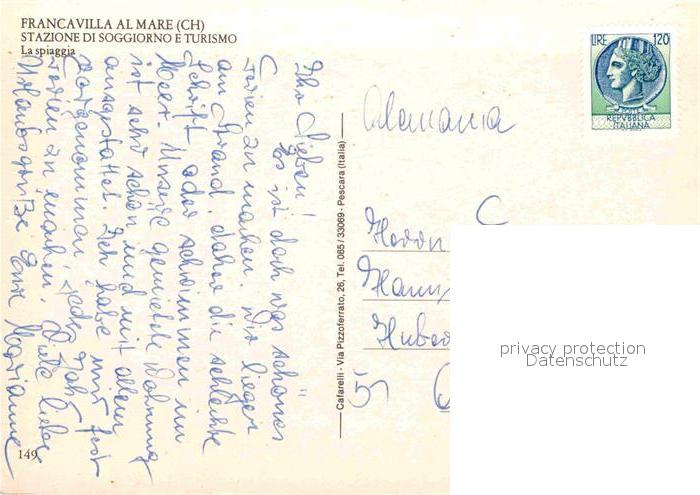 FRANCAVILLA AL MARE (CH)
STAZIONE DI SOGGIORNO E TURISMO
La spiaggia
Ihr Lieben!
Es ist doch was schönes
Ferien zu machen. Wir liegen
am Strand, daher die schlechte
Schrift oder schwimmen im
Meer. Unsere gemietete Wohnung
ist sehr schön und mit allem
ausgestattet. Ich habe mir fest
vorgenommen, jedes Jahr
Ferien zu machen. Viele liebe
Urlaubsgrüße Eure Marianne
149
Cafarelli - Via Pizzoferrato, 26, Tel. 085/33069 - Pescara (Italia)
LIRE 120
REPVBBLICA
ITALIANA
Alemania
Herrn
Hans
Huber
privacy protection
Datenschutz